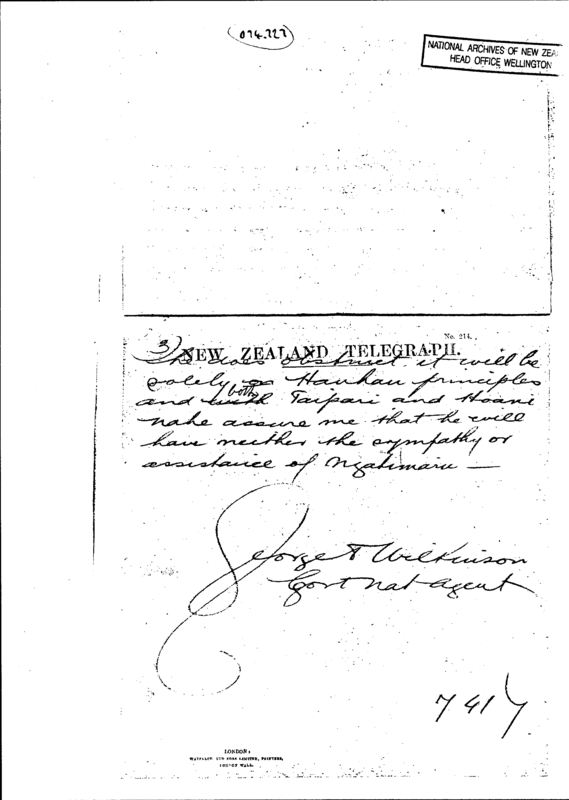 074.227
NATIONAL ARCHIVES OF NEW ZEA
HEAD OFFICE WELLINGTON
No. 214.
NEW ZEALAND TELEGRAPH.
3/
he does obstruct it will be
solely Hauhau principles
and both Taipari and Hoani
nahe assure me that he will
have neither the sympathy or
assistance of Ngatimaru —
George T Wilkinson
Govt Nat Agent
LONDON:
WATERLOW AND SONS LIMITED, PRINTERS,
LONDON WALL.